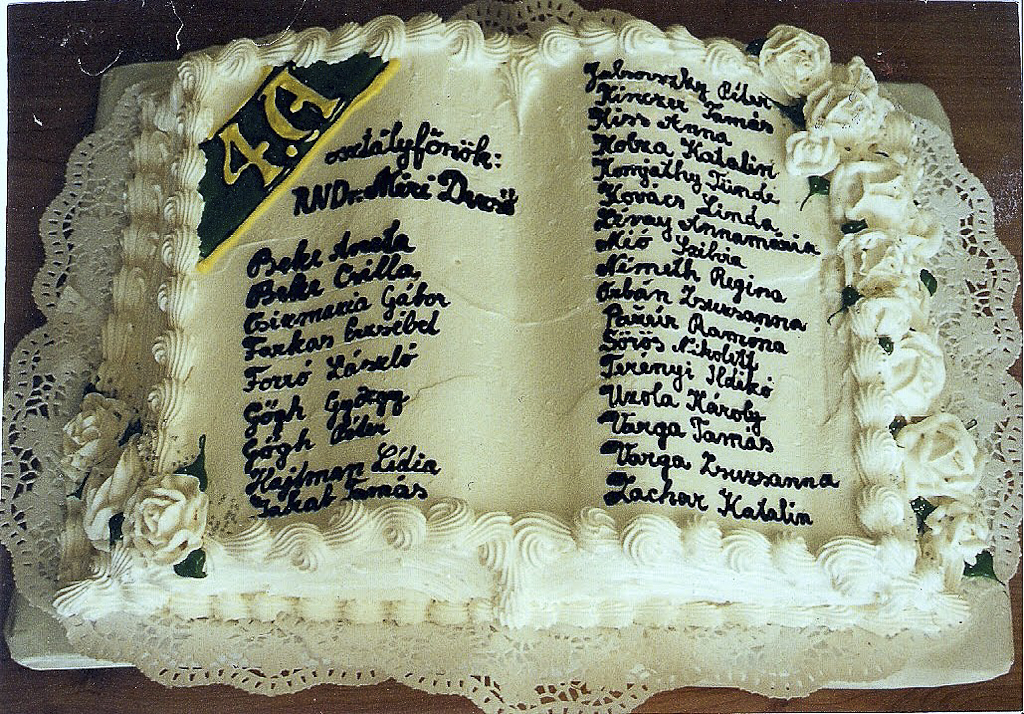 4.A
osztályfőnök:
RNDr. Méri Dezső
Beke Aneta
Beke Csilla
Csizmazia Gábor
Farkas Erzsébet
Forró László
Gőgh György
Gőgh Péter
Hajtman Lídia
Jakab Tamás
Jabrovszky Péter
Kinczer Tamás
Kiss Anna
Kobza Katalin
Komjáthy Tünde
Kovács Linda
Lévay Annamária
Mió Szilvia
Németh Regina
Orbán Zsuzsanna
Pazsír Ramóna
Sörös Nikolett
Terényi Ildikó
Uzola Károly
Varga Tamás
Varga Zsuzsanna
Zachar Katalin